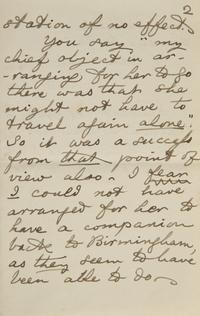 2
station of no effect.
You say "my
chief object in ar-
-ranging for her to go
there was that she
might not have to
travel again alone".
So it was a success
from that point of
view also. I fear
I could not have
arranged for her to
have a companion
back to Birmingham,
as they seem to have
been able to do